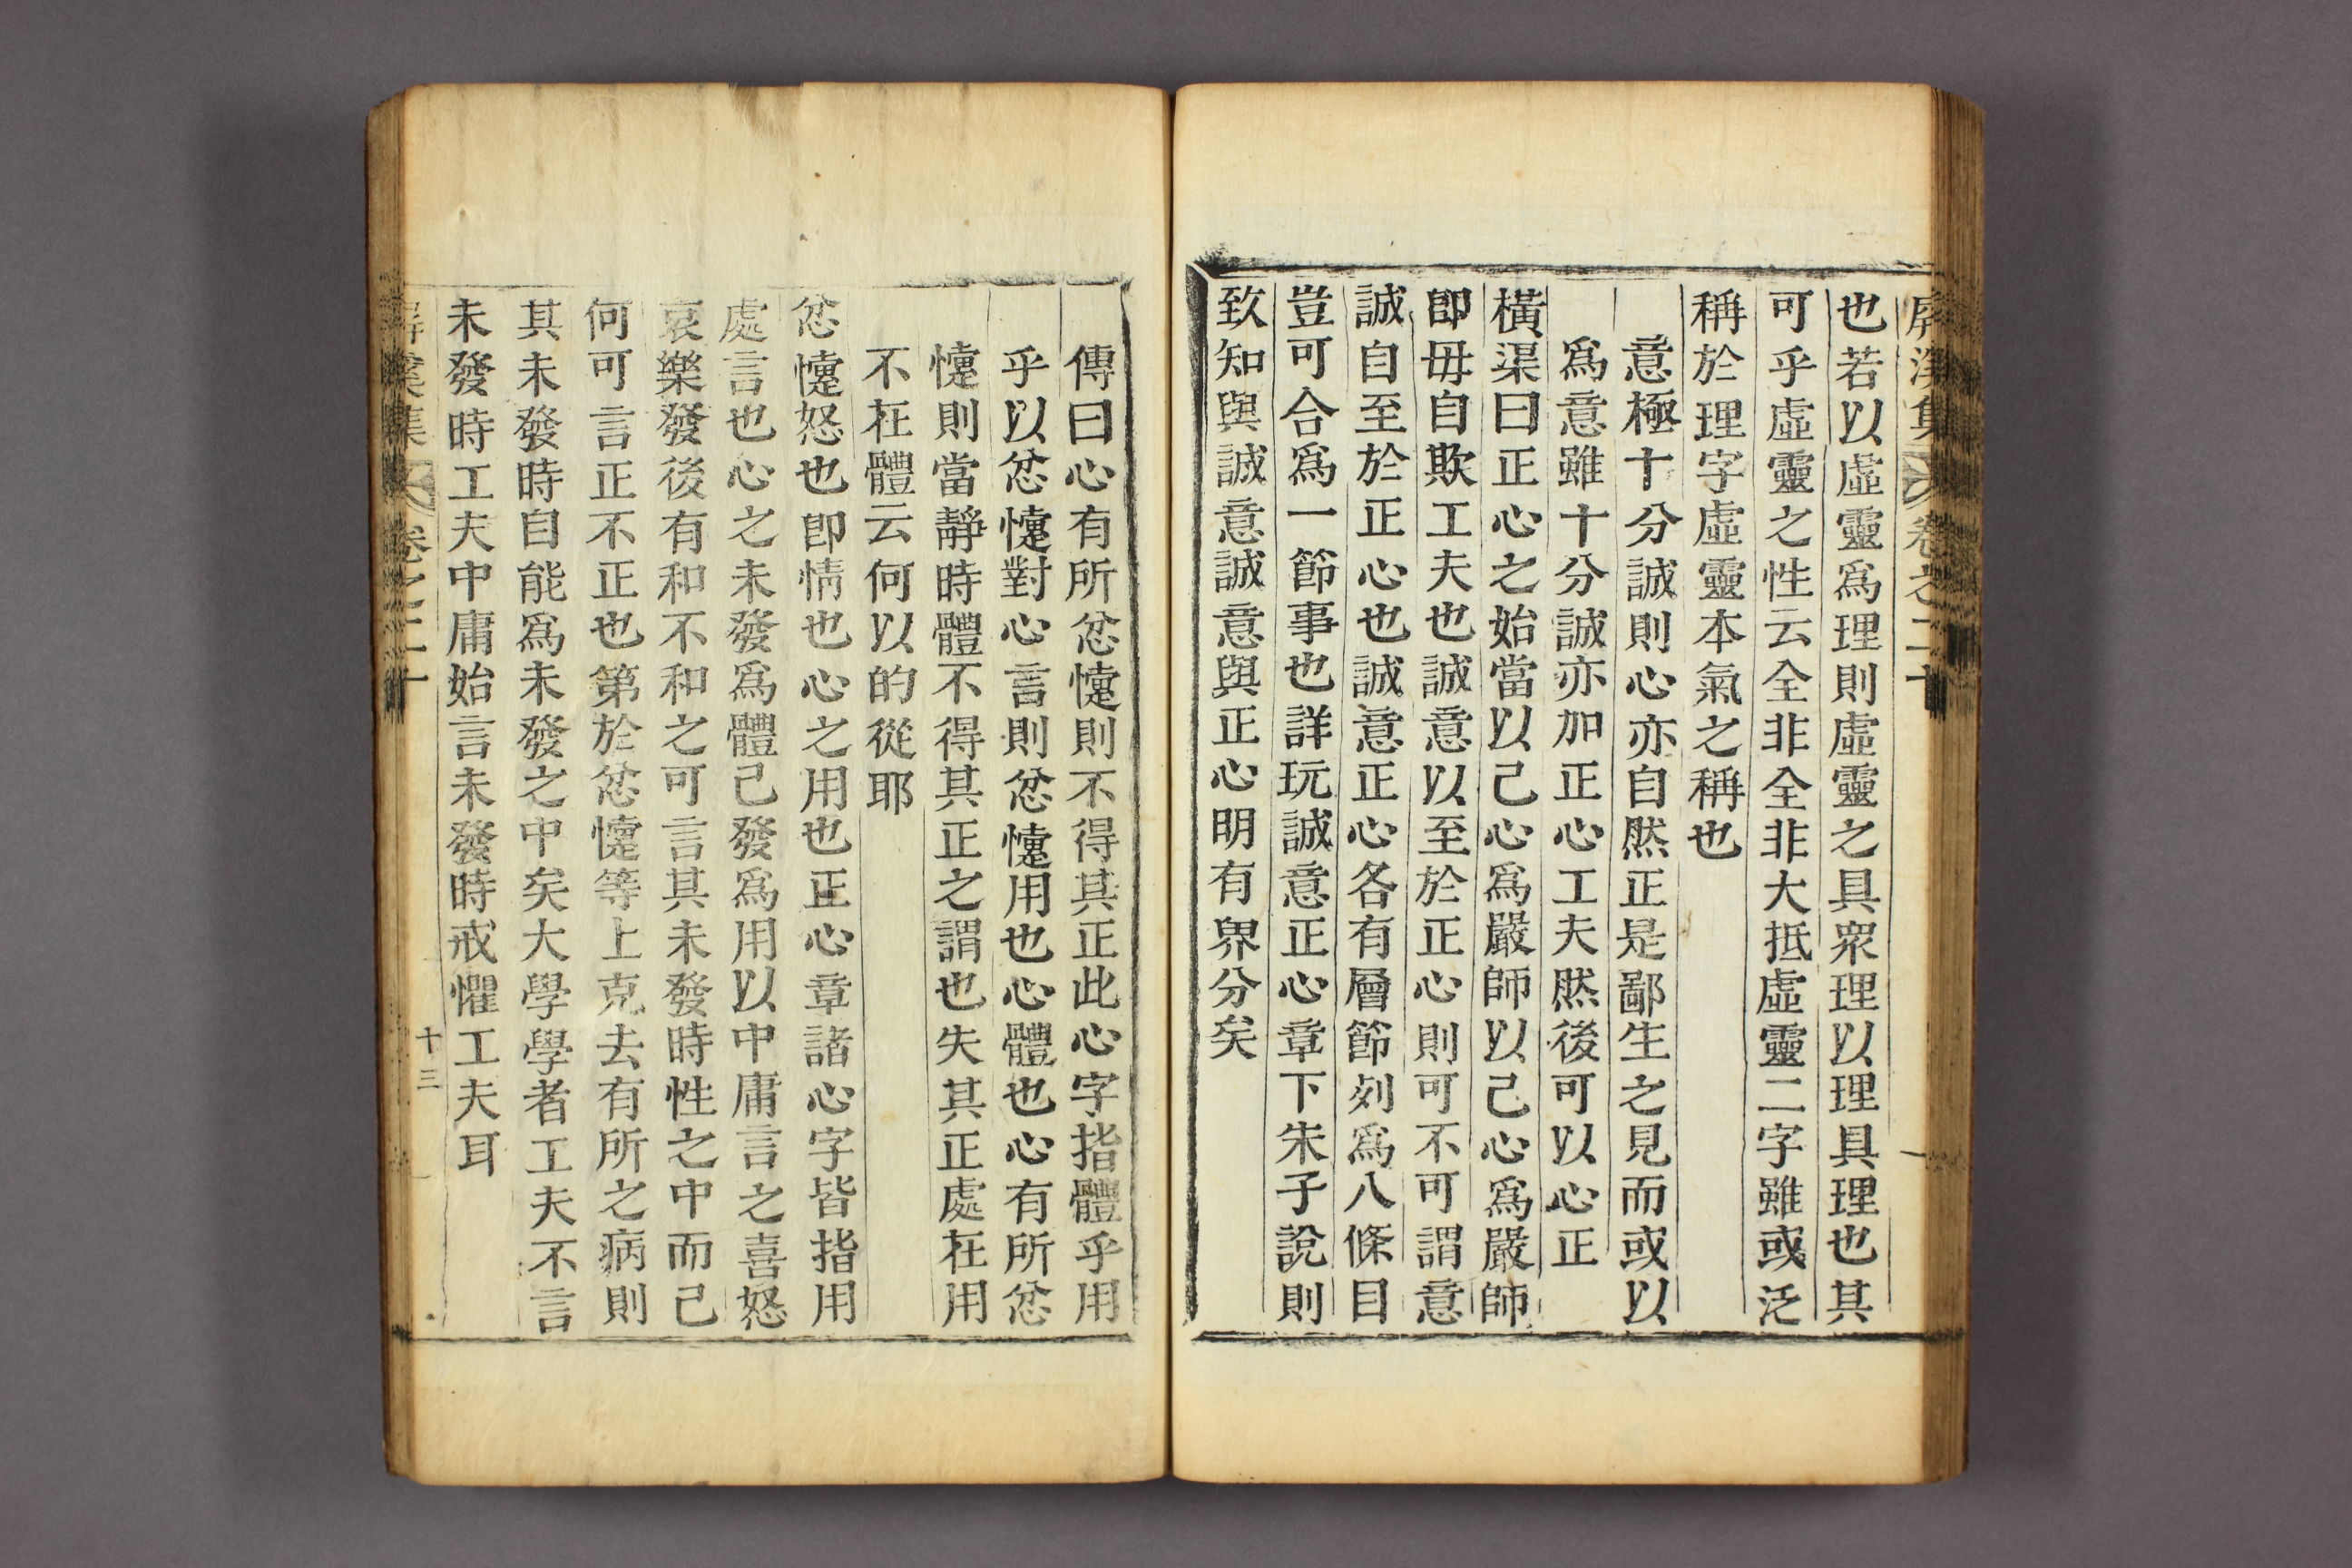 屛溪集 卷之二十
也若以虛靈爲理則虛靈之具衆理以理具理也其
可乎虛靈之性云全非全非大抵虛靈二字雖或泛
稱於理字虛靈本氣之稱也
意極十分誠則心亦自然正是鄙生之見而或以
爲意雖十分誠亦加正心工夫然後可以心正
橫渠曰正心之始當以己心爲嚴師以己心爲嚴師
卽毋自欺工夫也誠意以至於正心則可不可謂意
誠自至於正心也誠意正心各有層節列爲八條目
豈可合爲一節事也詳玩誠意正心章下朱子說則
致知與誠意誠意與正心明有界分矣
傳曰心有所忿懥則不得其正此心字指體乎用
乎以忿懥對心言則忿懥用也心體也心有所忿
懥則當靜時體不得其正之謂也失其正處在用
不在體云何以的從耶
忿懥怒也卽情也心之用也正心章諸心字皆指用
處言也心之未發爲體已發爲用以中庸言之喜怒
哀樂發後有和不和之可言其未發時性之中而已
何可言正不正也第於忿懥等上克去有所之病則
其未發時自能爲未發之中矣大學學者工夫不言
未發時工夫中庸始言未發時戒懼工夫耳
屛溪集 卷之二十 十三